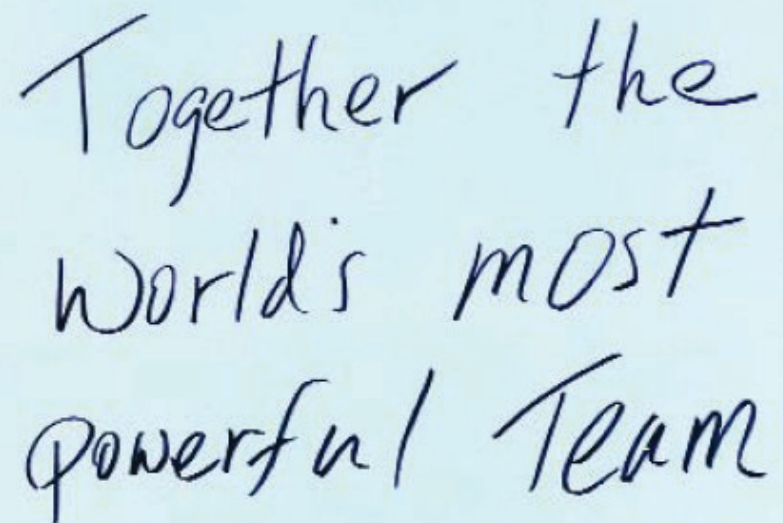 Together the
World's most
powerful Team